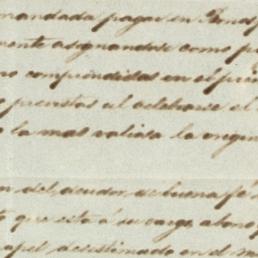 mandada pagar en
mente asignandose como p
no comprendidas en el pre
previstas al celebrarse el
la mas valiosa la origin
del deudor de buena fé
que está á su cargo, abon
apel desestimado en el m